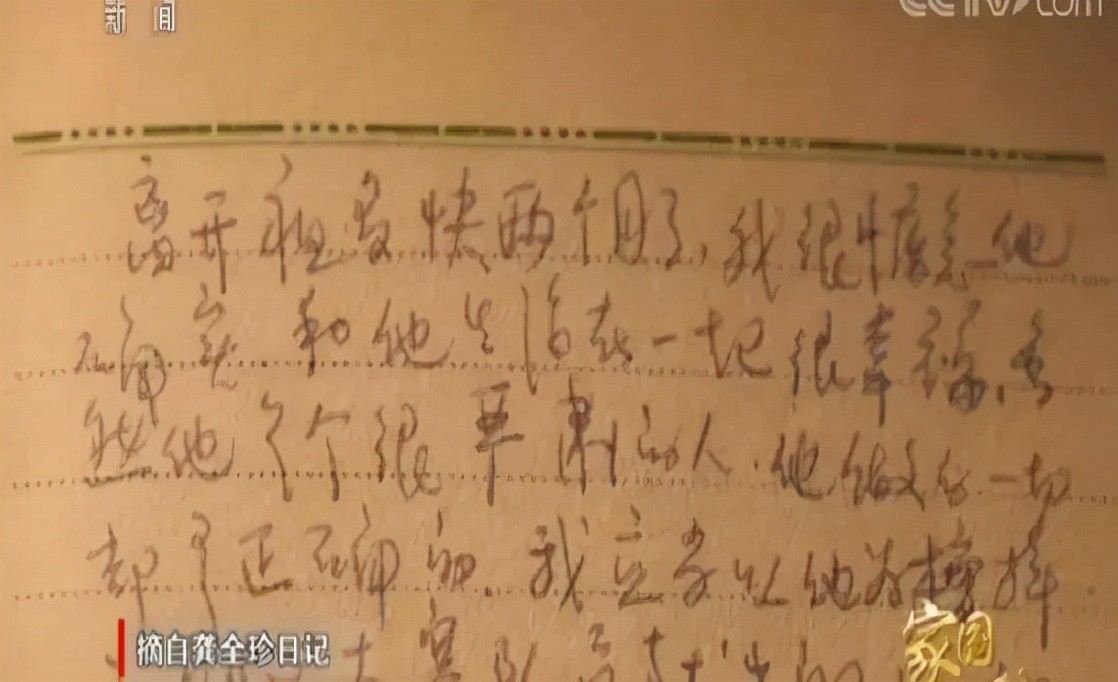 新闻
CCTV.com
离开祖昌快两个月了，我很惦念他
确实和他生活在一起很幸福，虽
然他是个很严肃的人，他做的一切
都是正确的 我应当以他为榜样。
摘自龚全珍日记
家园